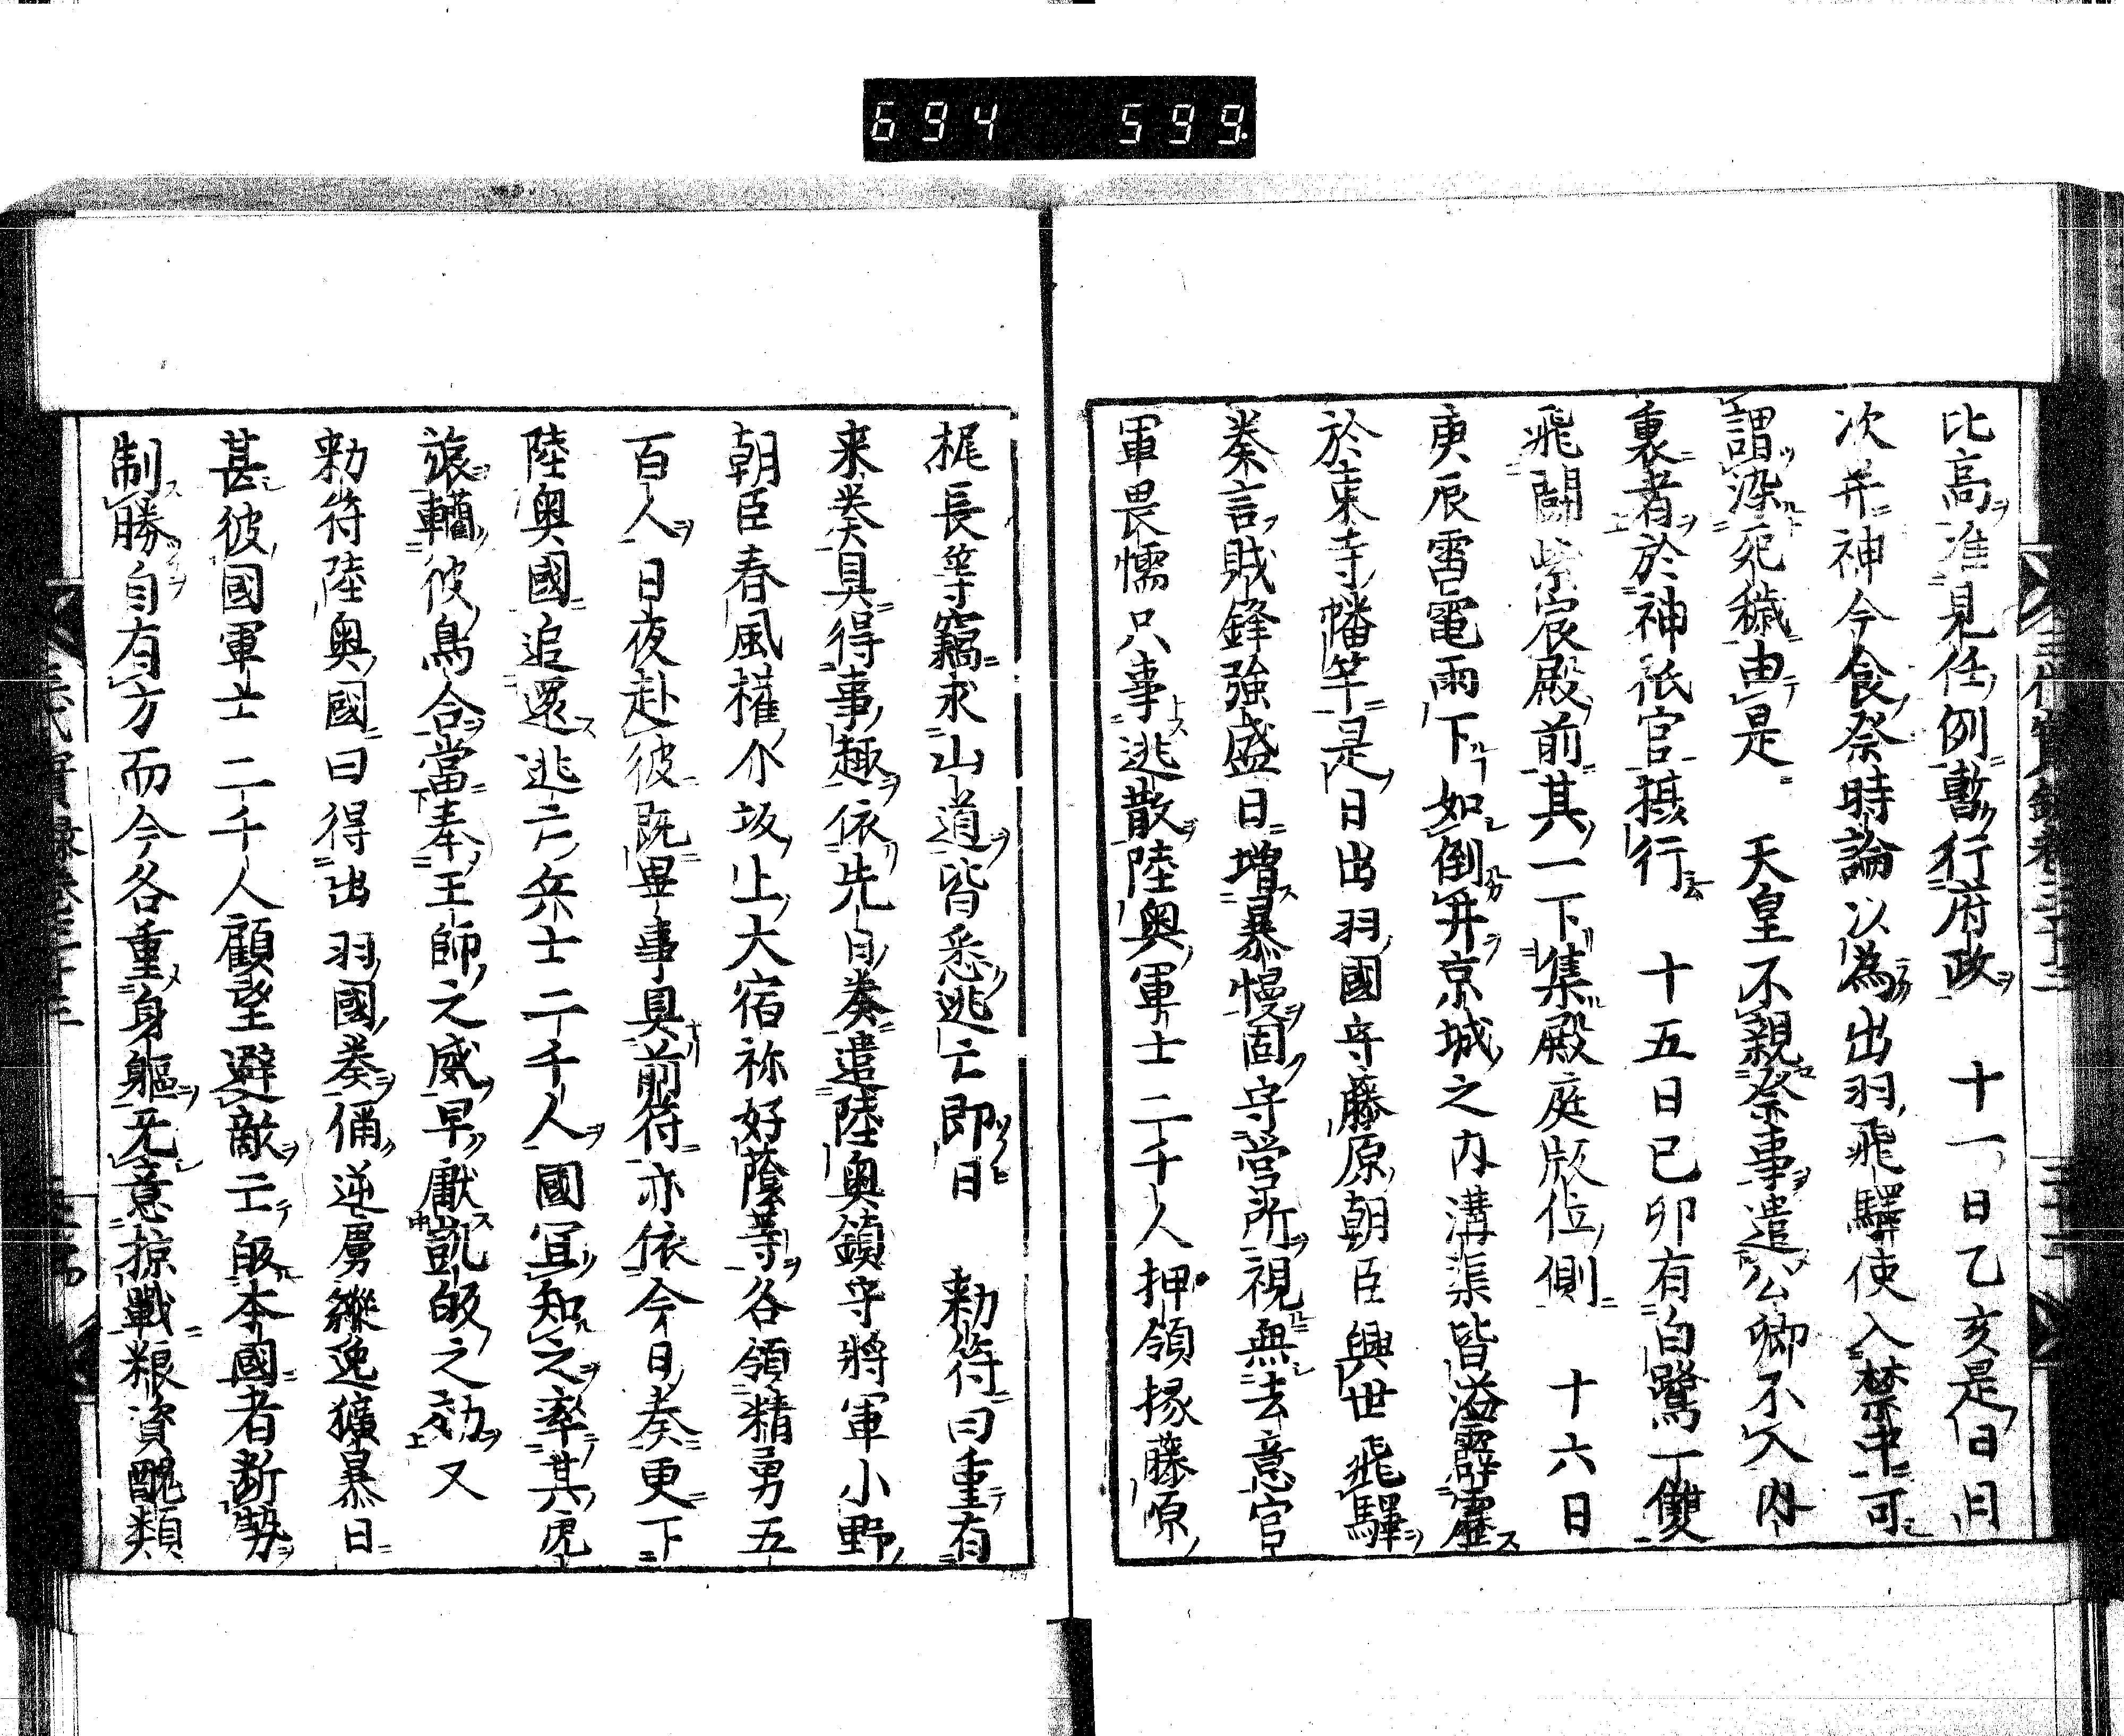 694 599.
比高准見任例暫行府政 十一日乙亥是日月
次并神今食祭時論以為出羽飛驛使入禁中可
謂染死穢由是 天皇不親祭事遣公卿不入内
裏者於神祇官摂行 十五日己卯有白鷺一雙
飛闘紫宸殿前其一下集殿庭版位側 十六日
庚辰雷電雨下如倒井京城之内溝渠皆溢霹靂
於東寺幡竿是日出羽國守藤原朝臣興世飛驛
奏言賊鋒強盛日増暴慢固守営所視無去意官
軍畏懦只事逃散陸奥軍士二千人押領掾藤原
梶長等竊求山道皆悉逃亡即日 勅符曰重有
来奏具得事趣依先日奏遣陸奥鎮守將軍小野
朝臣春風權介坂上大宿祢好蔭等各領精勇五
百人日夜赴彼既畢事具前符亦依今日奏更下
陸奥國追還逃亡兵士二千人國宜知之率其虎
旅轥彼烏合當奉王師之威早獻凱皈之効又
勅符陸奥國曰得出羽國奏偁逆虜縱逸獷暴日
甚彼國軍士二千人顧望避敵亡皈本國者断勢
制勝自有方而今各重身軀无意掠戦粮資醜類